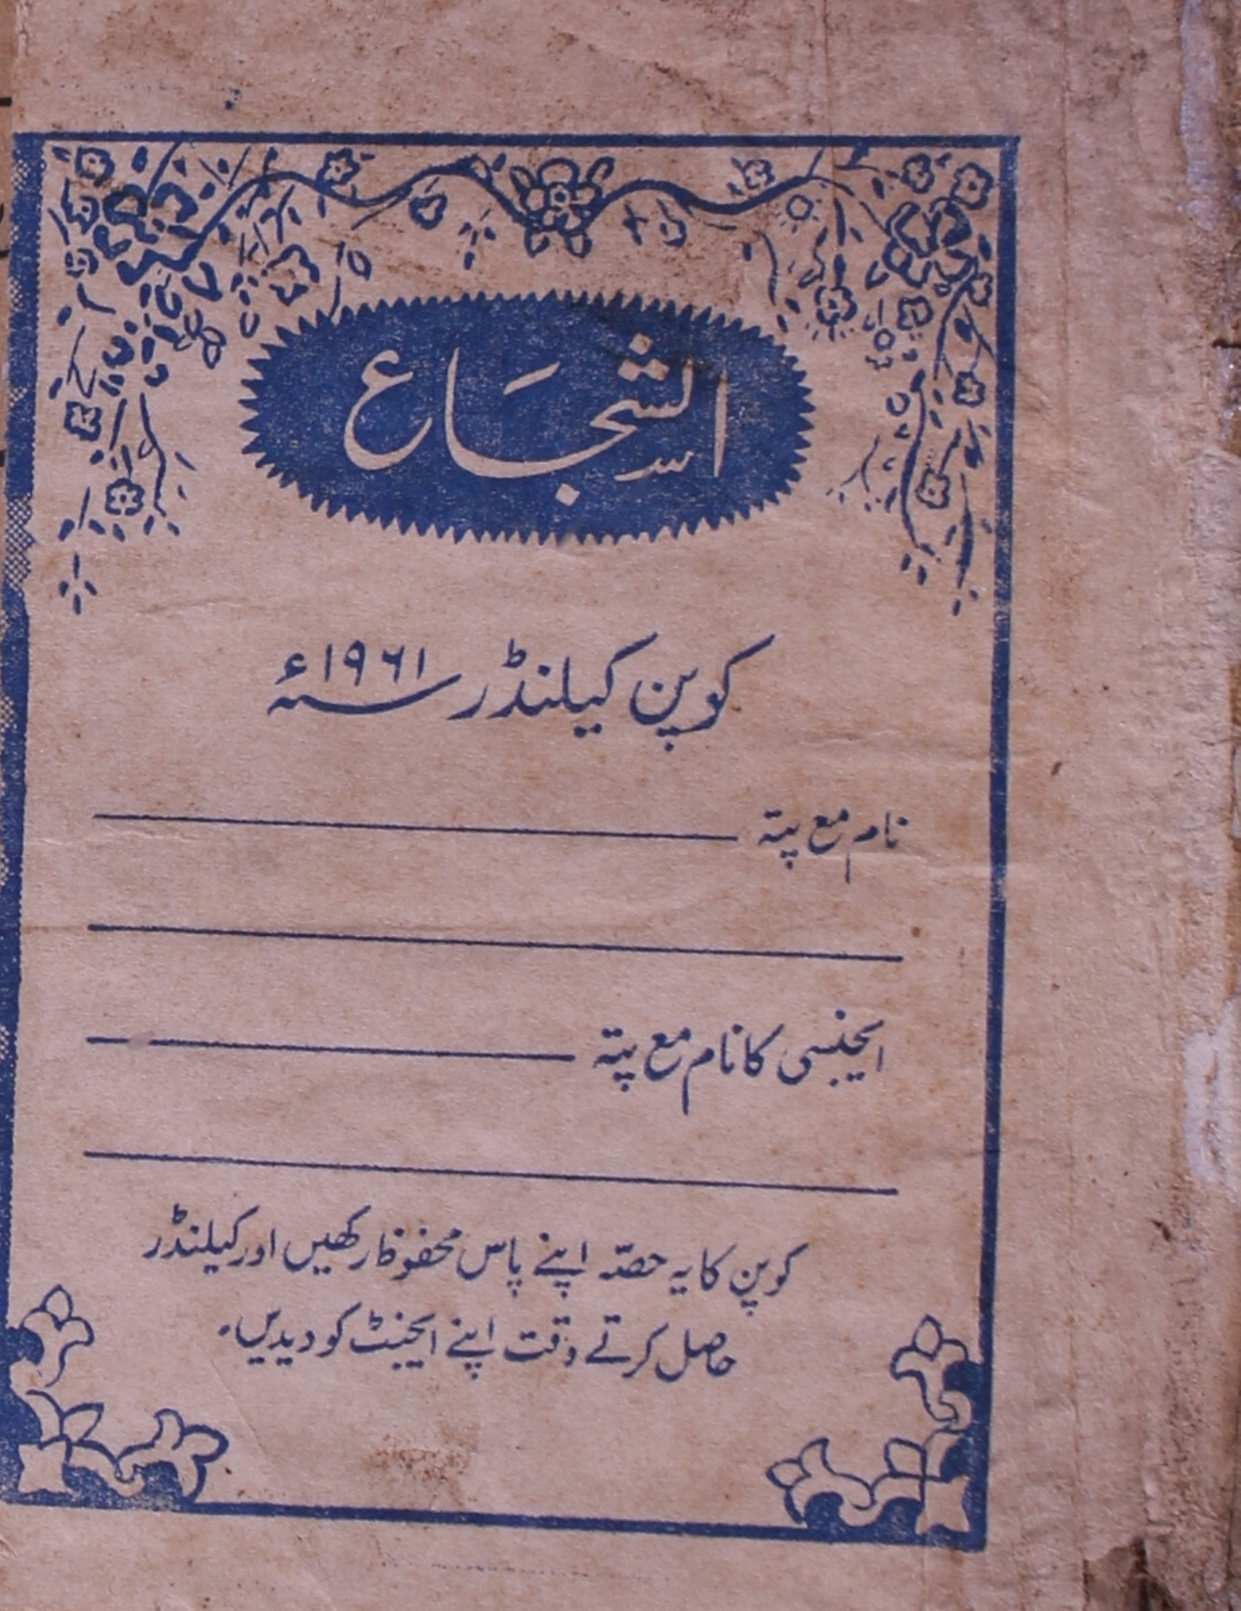 الشجاع
کوپن کیلنڈر ۱۹۶۱ء
نام مع پتہ
ایجنسی کا نام مع پتہ
کوپن کا یہ حصّہ اپنے پاس محفوظ رکھیں اور کیلنڈر
حاصل کرتے وقت اپنے ایجنٹ کو دیدیں۔